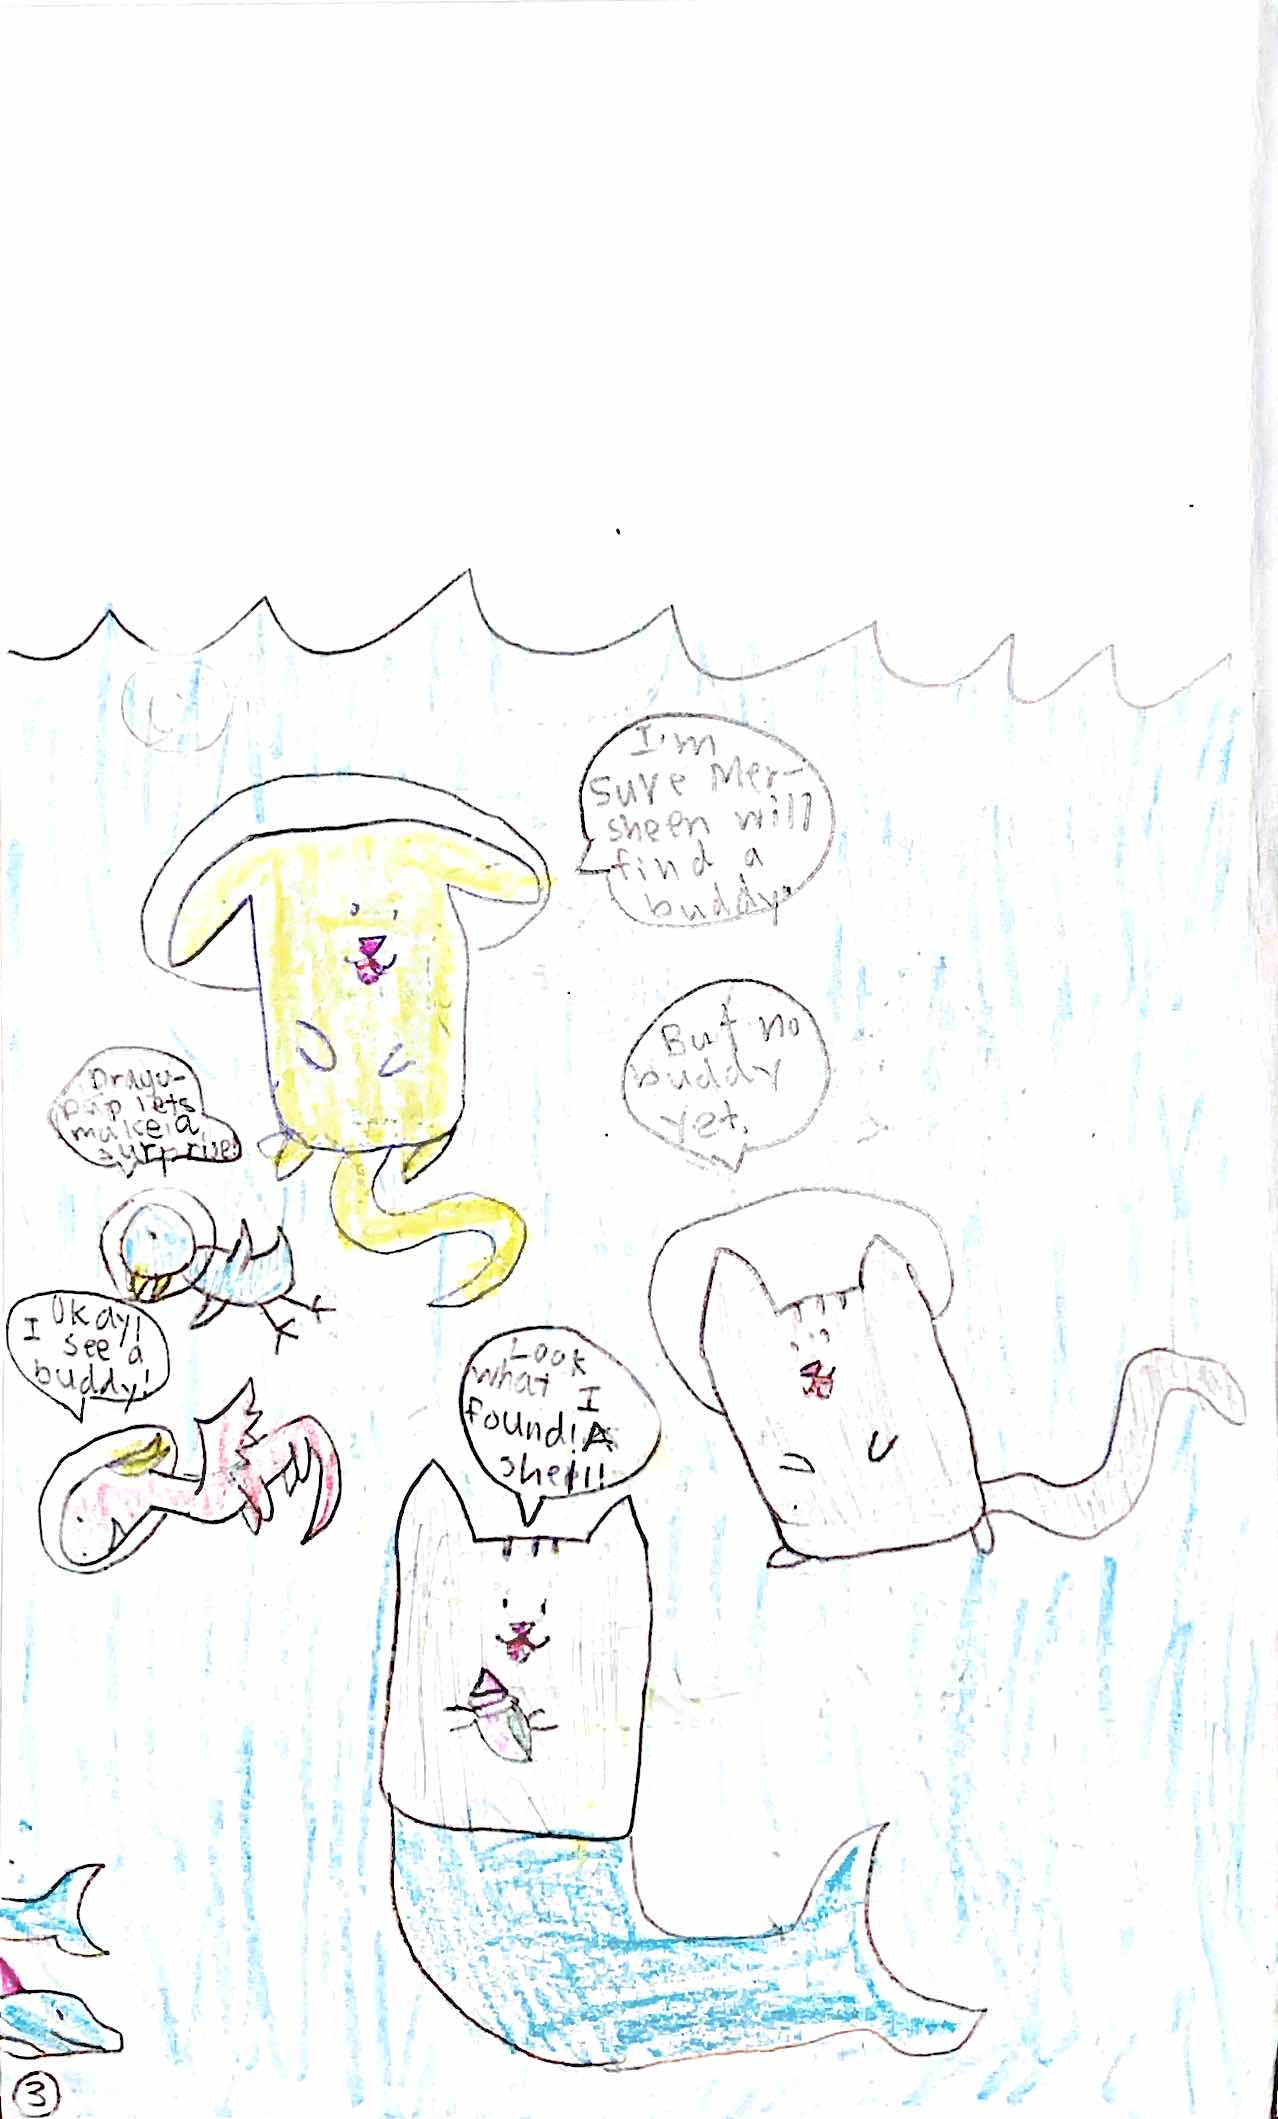 I'm
sure Mer-
sheen will
find a
buddy.
But no
buddy
yet.
Dragu-
pup lets
make a
surprise.
Okay!
I see a
buddy!
Look
what I
found! A
shell!
3